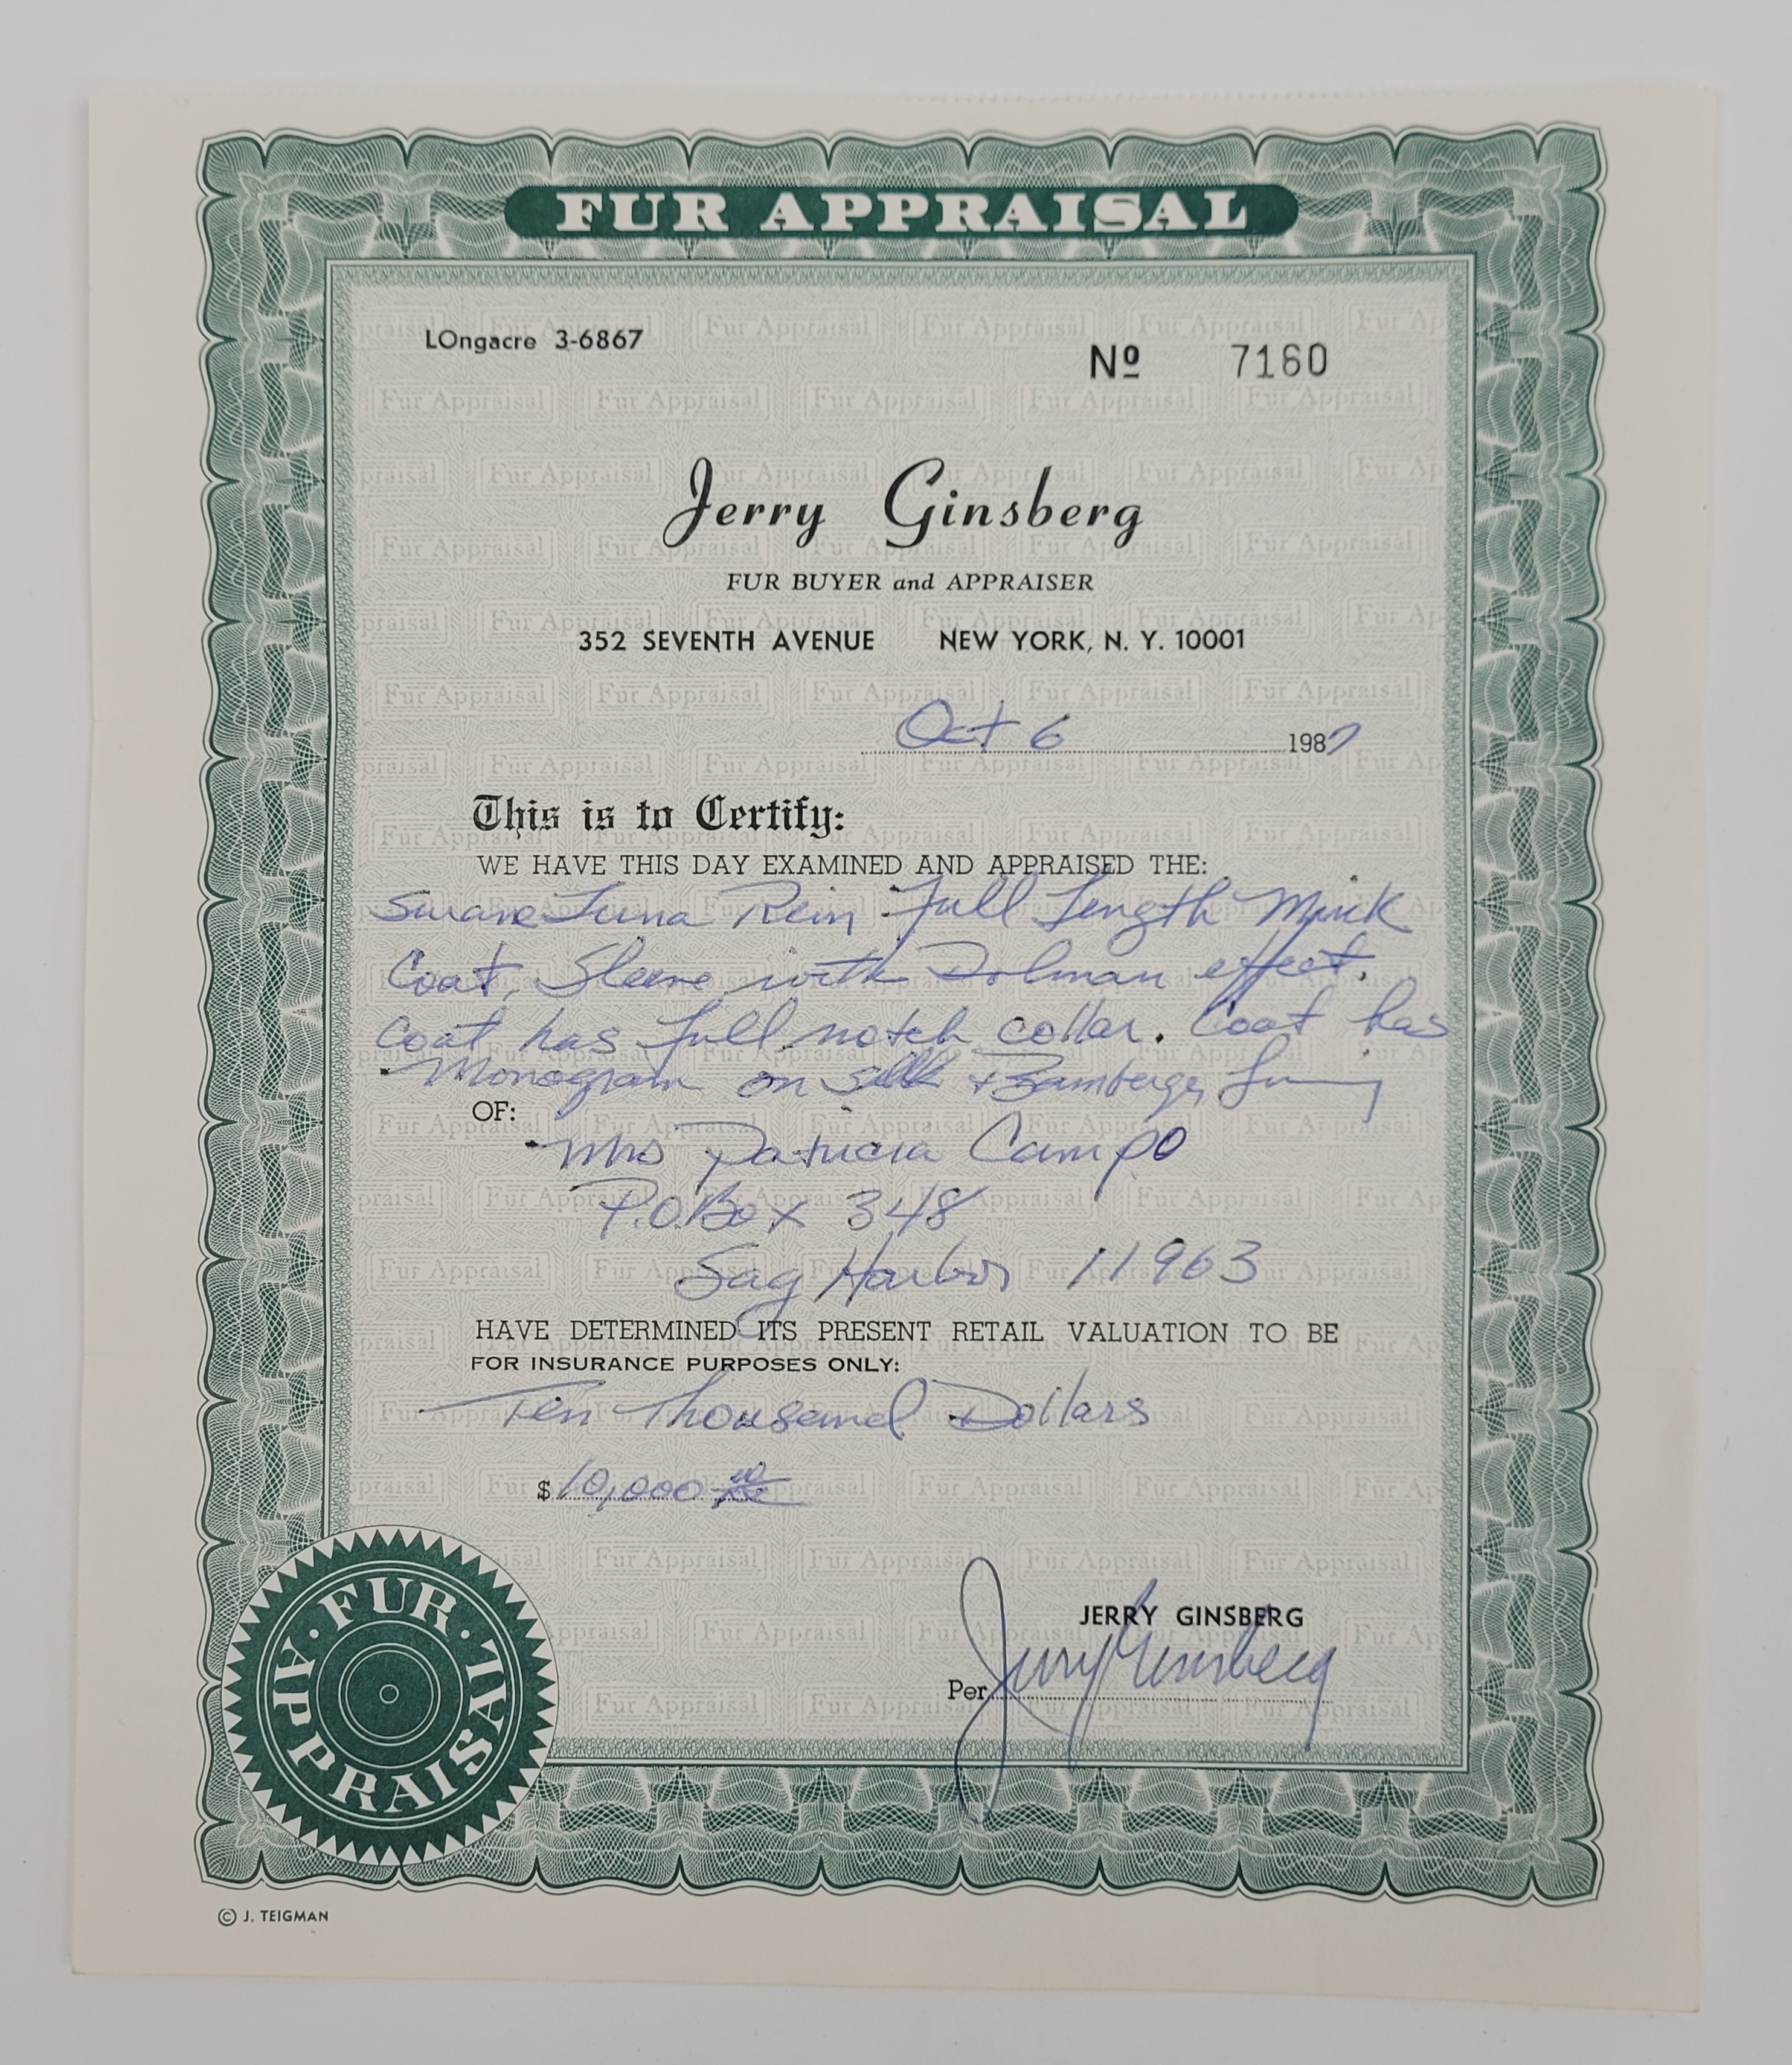 FUR APPRAISAL
LOngacre 3-6867
Nº 7160
Jerry Ginsberg
FUR BUYER and APPRAISER
352 SEVENTH AVENUE NEW YORK, N. Y. 10001
Oct 6 1987
This is to Certify:
WE HAVE THIS DAY EXAMINED AND APPRAISED THE:
Full Length Mink
Coat, Sleeve with Dolman effect.
Coat has full notch collar. Coat has
Monogram on silk
OF:
Mrs Patricia Campo
P.O.Box 348
Sag Harbor 11963
HAVE DETERMINED ITS PRESENT RETAIL VALUATION TO BE
FOR INSURANCE PURPOSES ONLY:
Ten Thousand Dollars
$ 10,000
JERRY GINSBERG
Per Jerry Ginsberg
FUR APPRAISAL
© J. TEIGMAN